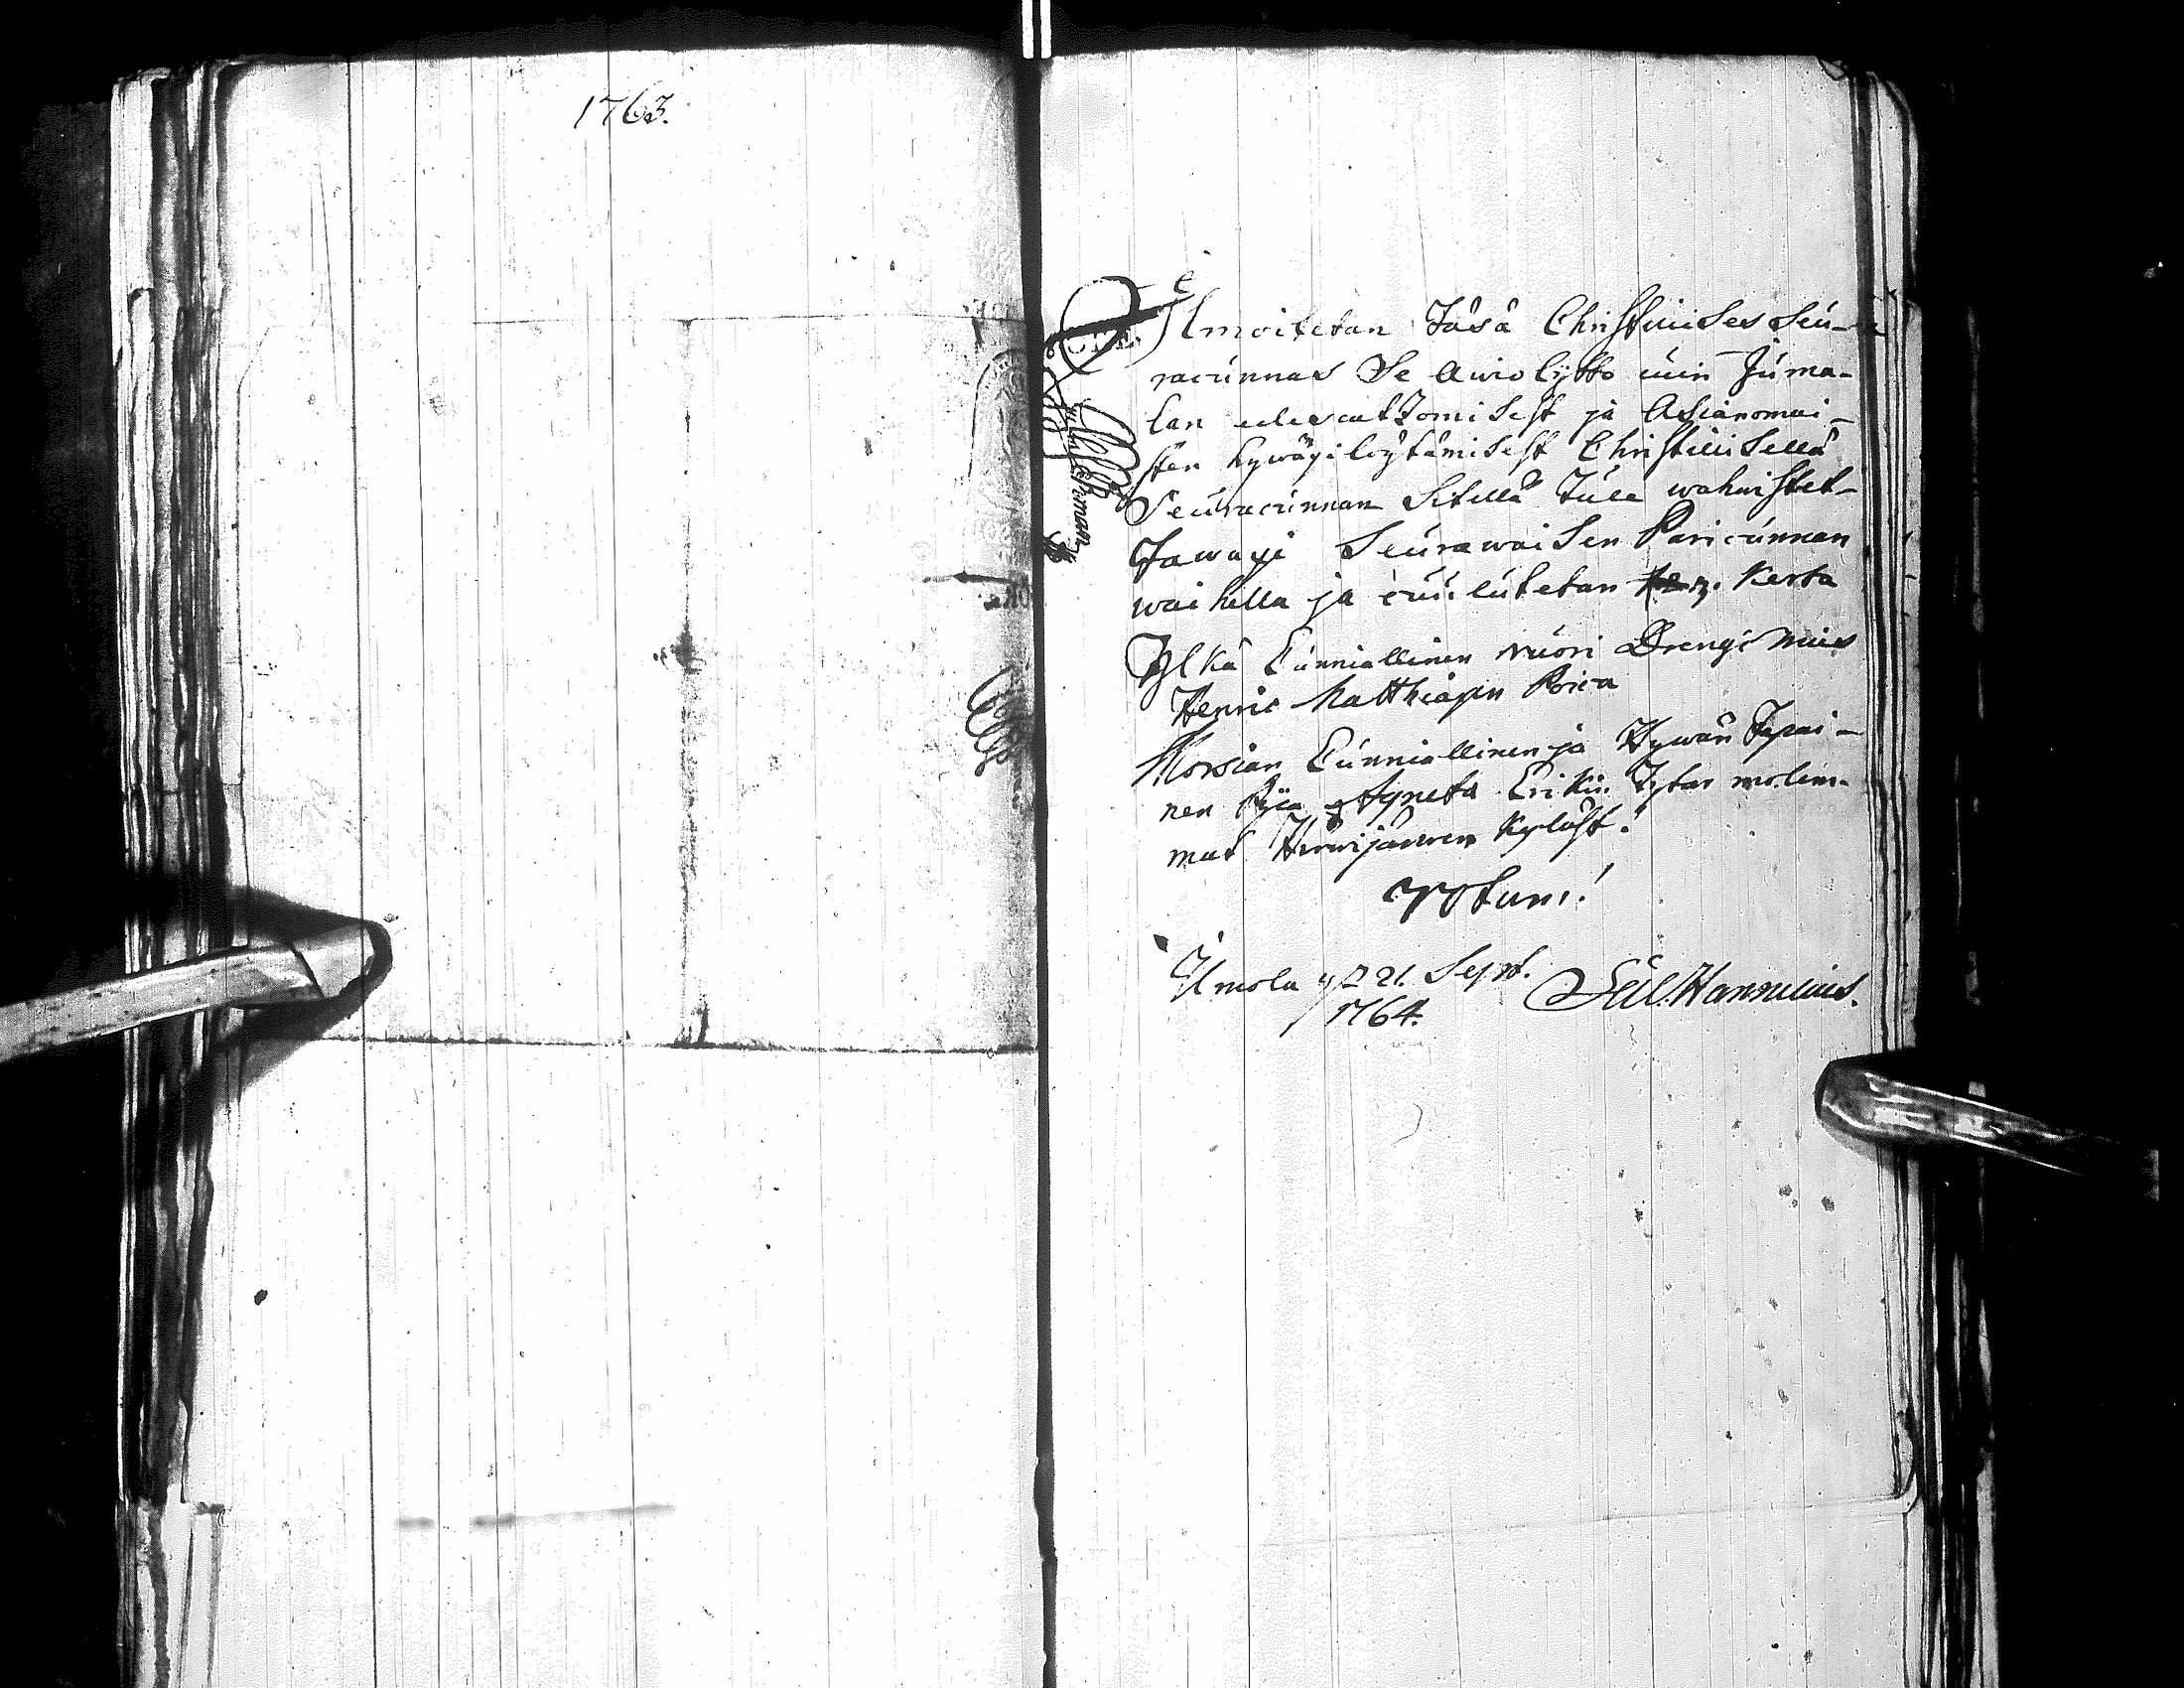 1763.
Ilmoitetan Täsä Christilises Seu-
racunnas Se Awio lijtto cuin Juma-
lan edescatzomisest ja Asianomai-
sten hywäxi löytämisest Christillisellä
Seuracunnan Sitellä Tule wahwistet-
Tawaxi Seurawaisen Paricunnan
waihella ja cuulutetan 3. Kerta
Ylkä Cunniallinen nuori Drengi mies
Henric Matthiaxen Poica
Morsian Cunniallinen ja Hywän Tapai-
nen Pijca Agneta Erikin Tytär molem-
mat Hirwijärwen Kyläst.
Votum!
Ilmola d. 21. Sept.
1764.
Hannelius.